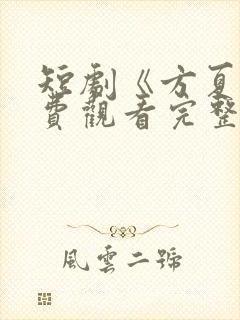 短劇《方夏
費觀看完整
風雲二號